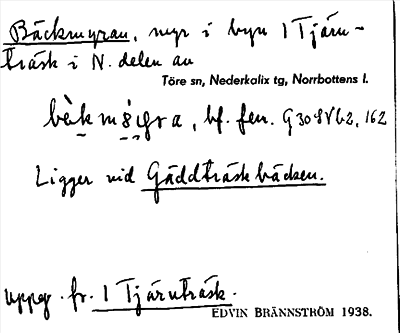 Bäckmyran, myr i byn 1 Tjärn-
träsk i N. delen av
Töre sn, Nederkalix tg, Norrbottens l.
bf. fem.
Ligger vid Gäddträskbäcken.
uppg. fr. 1 Tjärnträsk.
EDVIN BRÄNNSTRÖM 1938.